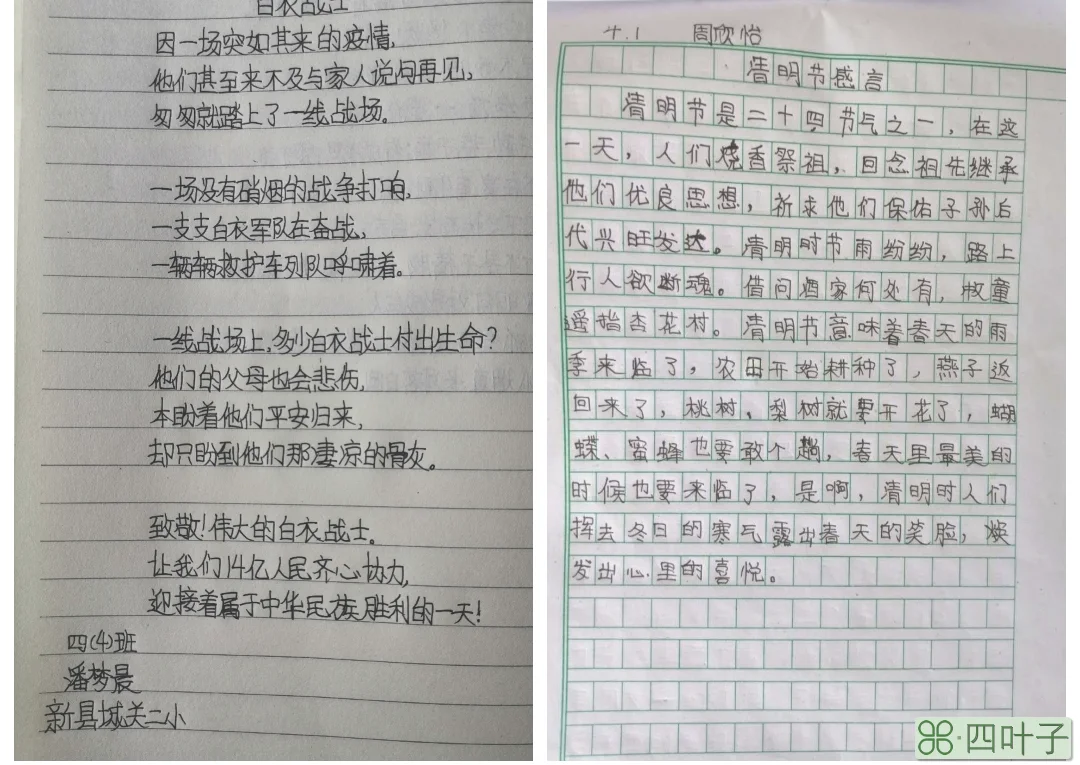 白衣战士
因一场突如其来的疫情,
他们甚至来不及与家人说句再见,
匆匆就踏上了一线战场。
一场没有硝烟的战争打响,
一支支白衣军队在奋战,
一辆辆救护车列队呼啸着。
一线战场上,多少白衣战士付出生命?
他们的父母也会悲伤,
本盼着他们平安归来,
却只盼到他们那凄凉的骨灰。
致敬!伟大的白衣战士。
让我们14亿人民齐心协力,
迎接着属于中华民族胜利的一天!
四(4)班
潘梦晨
新县城关二小
4.1 周欣怡
清明节感言
清明节是二十四节气之一,在这
一天,人们烧香祭祖,回念祖先继承
他们优良思想,祈求他们保佑子孙后
代兴旺发达。清明时节雨纷纷,路上
行人欲断魂。借问酒家何处有,牧童
遥指杏花村。清明节意味着春天的雨
季来临了,农田开始耕种了,燕子返
回来了,桃树、梨树就要开花了,蝴
蝶、蜜蜂也要敢个趟,春天里最美的
时候也要来临了,是啊,清明时人们
挥去冬日的寒气露出春天的笑脸,焕
发出心里的喜悦。
四叶子